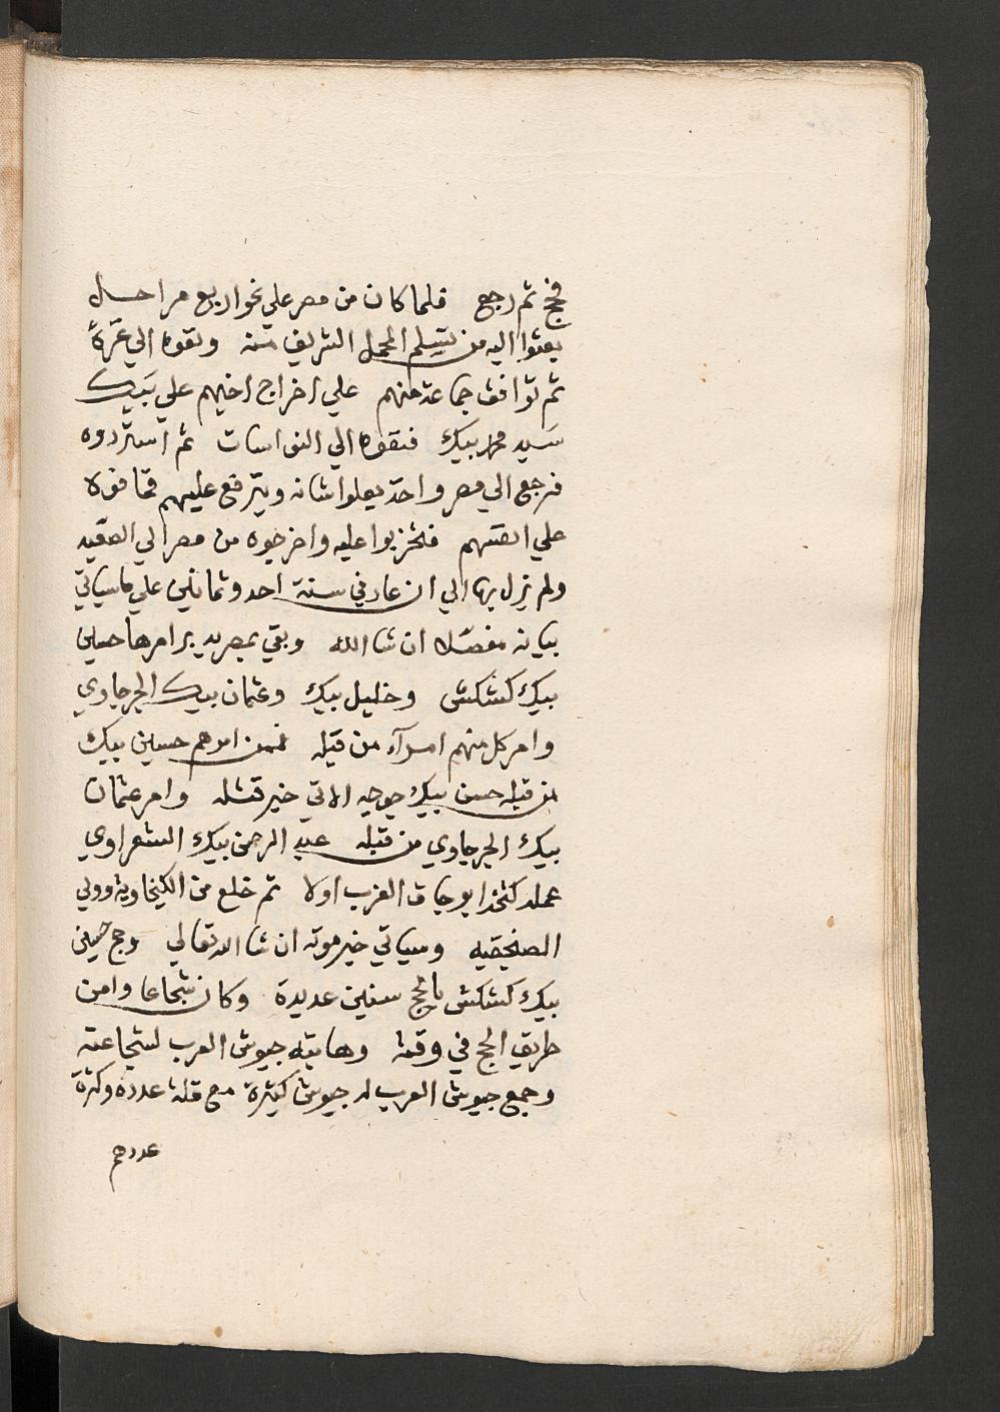 فحج ثم رجع فلما كان من مصر علي نحو اربع مراحل
بعثوا اليه من يتسلم المحمل الشريف منه ونفوه الي غزة
ثم توافق جماعة منهم علي اخراج اخيهم علي بيك
سيد محمد بيك فنفوه الي النواسات ثم استردوه
فرجع الي مصر واخذ يعلوا شانه ويترفع عليهم فخافوه
علي انفسهم فتحزبوا عليه واخرجوه من مصر الي الصعيد
ولم يزل بها الي ان عاد في سنة احد وثمانين علي ما سياتي
بيانه مفصلا ان شا الله وبقي بمصر يدبر امرها حسين
بيك كشكش وخليل بيك وعثمان بيك الجرجاوي
وامر كل منهم امرآء من قبله فممن امرهم حسين بيك
من قبله حسن بيك جوجه الاتي خبر قتله وامر عثمان
بيك الجرجاوي من قبله عبد الرحمن بيك الشعراوي
عمله كتخدا بوجاق العزب اولا ثم خلع من الكيخاوية وولي
الصنجقيه وسياتي خبر موته ان شا الله تعالي وحج حسين
بيك كشكش بالحج سنين عديدة وكان شجاعا وامن
طريق الحج في وقته وهابته جيوش العرب لشجاعته
وجمع جيوش العرب له جيوش كثيرة مع قلة عدده وكثرة
عددهم